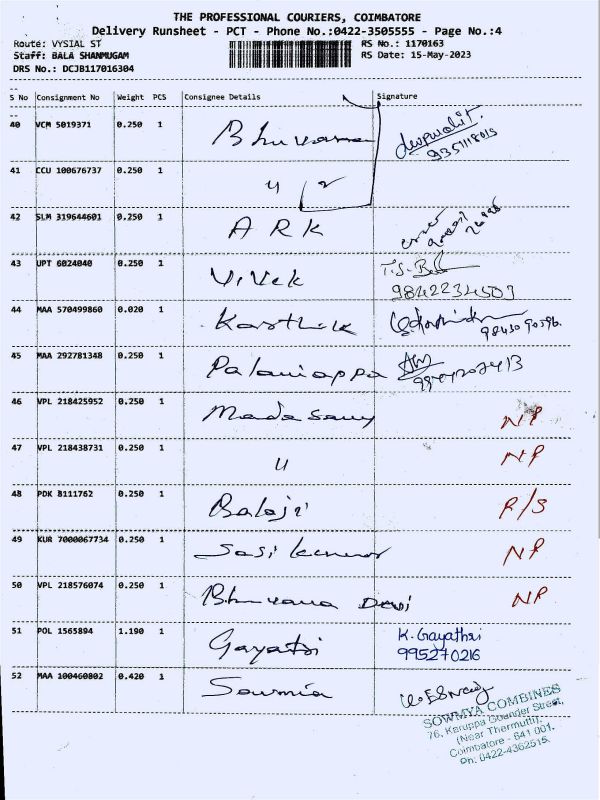 THE PROFESSIONAL COURIERS, COIMBATORE
Delivery Runsheet - PCT - Phone No.:0422-3505555 - Page No.:4
Route: VYSIAL ST RS No.: 1170163
Staff: BALA SHANMUGAM RS Date: 15-May-2023
DRS No.: DCJB117016304
S No Consignment No Weight PCS Consignee Details Signature
40 VCM 5019371 0.250 1 Bhuvana
41 CCU 100676737 0.250 1 4 2
42 SLM 319644601 0.250 1 ARK
43 UPT 6024040 0.250 1 Vivek T.S.
9842234503
44 MAA 570499860 0.020 1 Karthik
45 MAA 292781348 0.250 1 Palaniappa
46 VPL 218425952 0.250 1 Mada Samy NP
47 VPL 218438731 0.250 1 4 NP
48 PDK 8111762 0.250 1 Balaji R/S
49 KUR 7000067734 0.250 1 Sasi kumar NP
50 VPL 218576074 0.250 1 Bhuvana Devi NP
51 POL 1565894 1.190 1 Gayatri K. Gayathri
995270216
52 MAA 100460802 0.420 1 Sowmia
SOWMYA COMBINES
76, Karuppa Gounder Street,
(Near Thermutti),
Coimbatore - 641 001.
Ph: 0422-4362515.